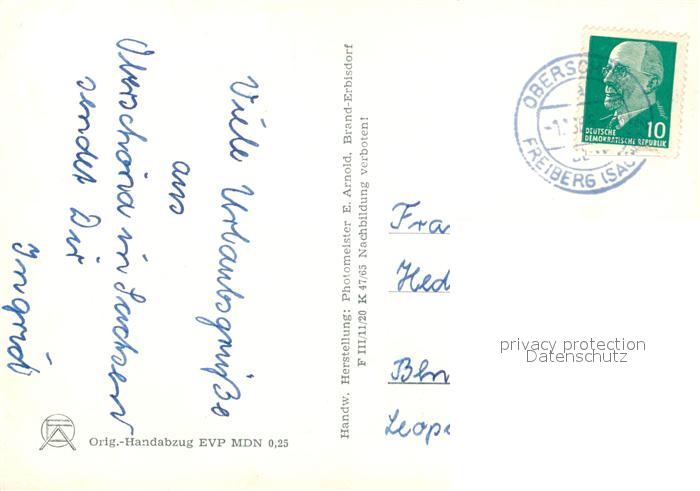 Viele Urlaubsgrüße
aus
Oberschöna in Sachsen
sendet Dir
Ingrid
Orig.-Handabzug EVP MDN 0,25
Handw. Herstellung: Photomeister E. Arnold, Brand-Erbisdorf
F III/11/20 K 47/65 Nachbildung verboten!
OBERSC
FREIBERG (SAC
10
DEUTSCHE
DEMOKRATISCHE REPUBLIK
Fra
Hed
privacy protection
Datenschutz
Bln
Leop